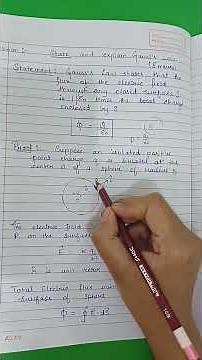 State and explain Gauss's
Statement : Gauss's Law states that the
flux of the electric field
through any closed surface S
is 1/ε0 times the total charge
enclosed by S
Φ = Q/ε0
Proof : Suppose an isolated positive
point charge q is situated at the
centre O of a sphere of radius r
electric field
P on the surface
E = K q
r is unit vector
Total Electric flux
surface of sphere
Φ = ∮ E⃗ . dS⃗